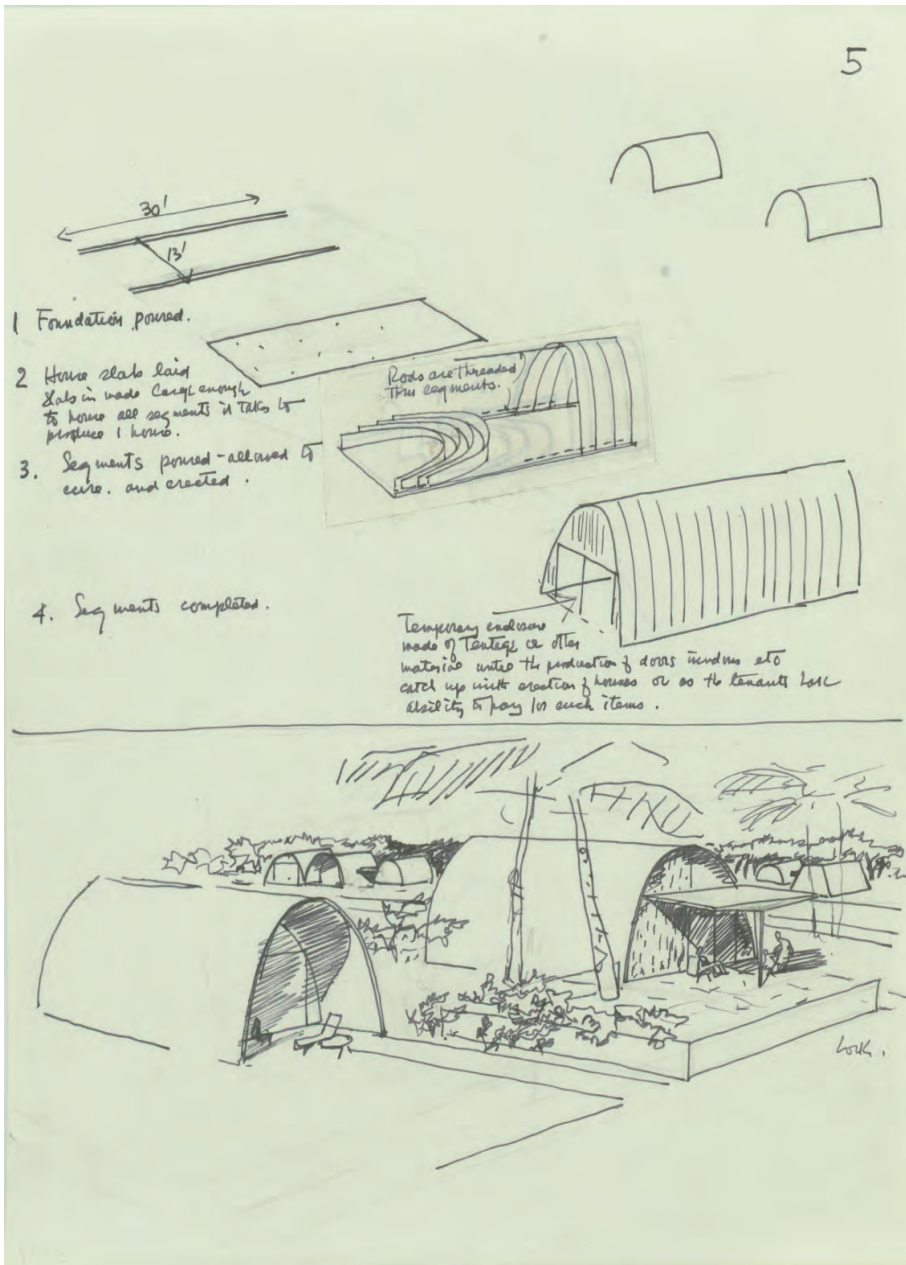 5
30'
13'
1 Foundation poured.
2 House slab laid
Slab is made large enough
to house all segments it takes to
produce 1 house.
Rods are threaded
thru segments.
3. Segments poured - allowed to
cure. and erected.
4. Segments completed.
Temporary enclosure
made of Tentage or other
material until the production of doors windows etc
catch up with erection of houses or as the tenants
ability to pay for such items.